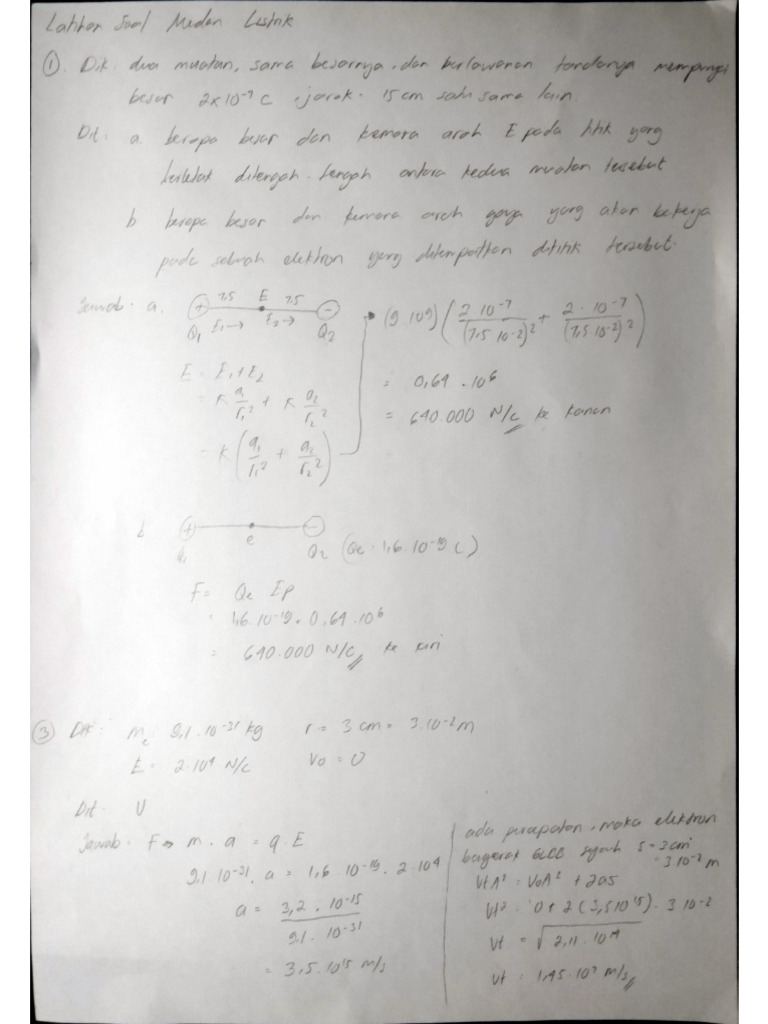 Latihan Soal Medan Listrik
① Dik : dua muatan, sama besarnya, dan berlawanan tandanya mempunyai
besar 2x10⁻⁷ C, jarak = 15 cm satu sama lain.
Dit : a. berapa besar dan kemana arah E pada titik yang
terletak ditengah-tengah antara kedua muatan tersebut
b berapa besar dan kemana arah gaya yang akan bekerja
pada sebuah elektron yang ditempatkan dititik tersebut.
Jawab : a. + 7,5 E 7,5 −
Q₁ E₁→ E₂→ Q₂
E = E₁+E₂
= K q₁/r₁² + K q₂/r₂²
= K (q₁/r₁² + q₂/r₂²)
• (9 10⁹) (2 10⁻⁷/(7,5 10⁻²)² + 2 . 10⁻⁷/(7,5 10⁻²)²)
= 0,64 . 10⁶
= 640.000 N/C ke kanan
b + e −
Q₁ Q₂ (Qe = 1,6 . 10⁻¹⁹ C)
F = Qe Ep
= 1,6 . 10⁻¹⁹ . 0,64 . 10⁶
= 640.000 N/C ke kiri
③ Dit : mₑ 9,1 . 10⁻³¹ kg r = 3 cm = 3.10⁻² m
E = 2.10⁴ N/C Vo = 0
Dit V
Jawab = F => m . a = q . E
9,1 10⁻³¹ . a = 1,6 . 10⁻¹⁹ . 2 10⁴
a = 3,2 . 10⁻¹⁵/9,1 . 10⁻³¹
= 3,5 . 10¹⁵ m/s
ada percepatan, maka elektron
bergerak GLBB sejauh S = 3 cm
= 3 10⁻² m
VtA² = VoA² + 2as
Vt² = 0 + 2 (3,5 10¹⁵) . 3 10⁻²
Vt = √2,11 . 10¹⁴
Vt = 1,45 . 10⁷ m/s